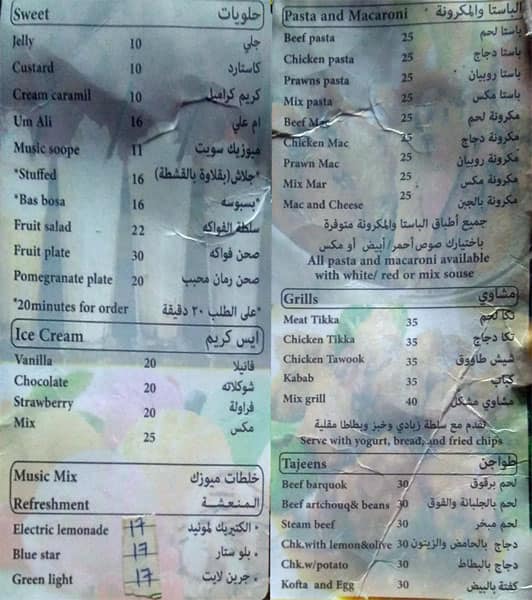 Sweet حلويات
Jelly 10 جلي
Custard 10 كاستارد
Cream caramil 10 كريم كراميل
Um Ali 16 ام علي
Music soope 11 ميوزيك سويت
*Stuffed 16 *جلاش(بقلاوة بالقشطة)
*Bas bosa 16 *بسبوسه
Fruit salad 22 سلطة الفواكه
Fruit plate 30 صحن فواكه
Pomegranate plate 20 صحن رمان محبب
*20minutes for order *على الطلب ٢٠ دقيقة
Ice Cream ايس كريم
Vanilla 20 فانيلا
Chocolate 20 شوكلاته
Strawberry 20 فراولة
Mix 25 مكس
Music Mix خلطات ميوزك
Refreshment المنعشة
Electric lemonade 17 • الكتيريك لمونيد
Blue star 17 • بلو ستار
Green light 17 • جرين لايت
Pasta and Macaroni الباستا والمكرونة
Beef pasta 25 باستا لحم
Chicken pasta 25 باستا دجاج
Prawns pasta 25 باستا روبيان
Mix pasta 25 باستا مكس
Beef Mac 25 مكرونة لحم
Chicken Mac 25 مكرونة دجاج
Prawn Mac 25 مكرونة روبيان
Mix Mar 25 مكرونة مكس
Mac and Cheese 25 مكرونة بالجبن
جميع أطباق الباستا والمكرونة متوفرة
باختيارك صوص أحمر/أبيض أو مكس
All pasta and macaroni available
with white/ red or mix souse
Grills مشاوي
Meat Tikka 35 تكا لحم
Chicken Tikka 35 تكا دجاج
Chicken Tawook 35 شيش طاووق
Kabab 35 كباب
Mix grill 40 مشاوي مشكل
تقدم مع سلطة زبادي وخبز وبطاطا مقلية
Serve with yogurt, bread, and fried chips
Tajeens طواجن
Beef barquok 30 لحم برقوق
Beef artchouq& beans 30 لحم بالجلبانة والقوق
Steam beef 30 لحم مبخر
Chk.with lemon&olive 30 دجاج بالحامض والزيتون
Chk.w/potato 30 دجاج بالبطاط
Kofta and Egg 30 كفتة بالبيض